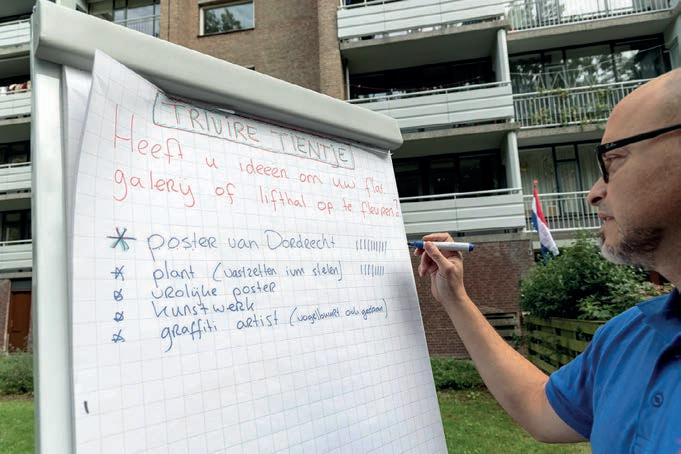 TRIVIRE TIENTJE
Heeft u ideeën om uw flat
galerij of lifthal op te fleuren?
poster van Dordrecht
plant (vastzetten ivm stelen)
vrolijke poster
kunstwerk
graffiti artist (vogelbuurt ook gedaan)